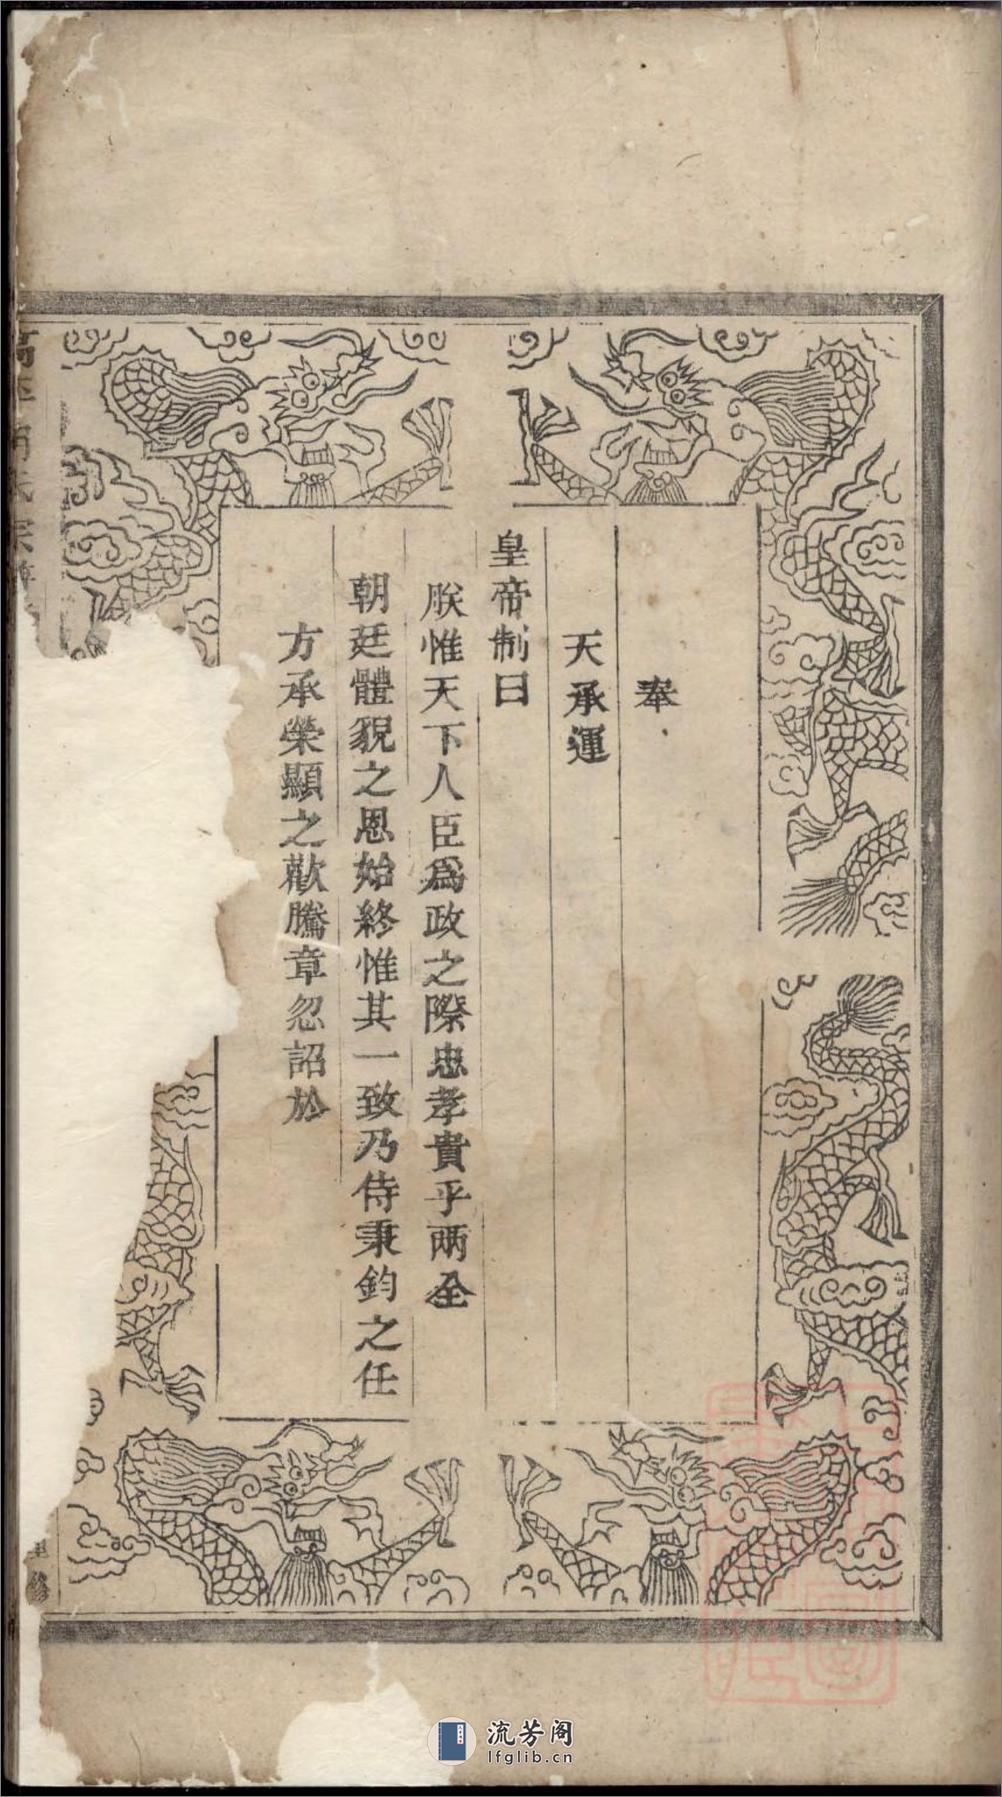 奉
天承運
皇帝制曰
朕惟天下人臣爲政之際忠孝貴乎兩全
朝廷體貌之恩始終惟其一致乃侍秉鈞之任
方承榮顯之歡騰章忽詔於
流芳阁
lfglib.cn